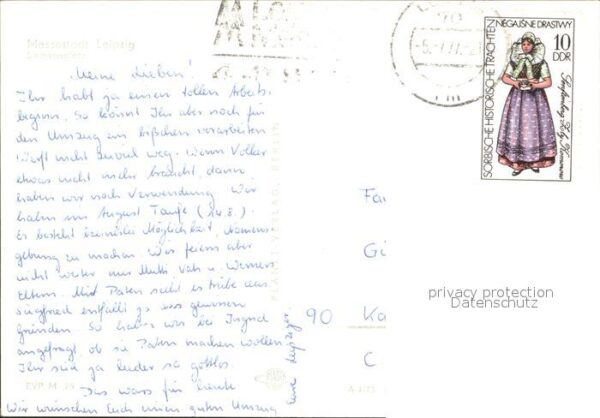 Messestadt Leipzig
Meine Lieben!
Ihr habt ja einen tollen Arbeits-
beginn. So könnt Ihr aber noch für
den Umzug ein bißchen vorarbeiten
Werft nicht zuviel weg. Wenn Volker
etwas nicht mehr braucht, dann
haben wir noch Verwendung. Wir
haben im August Taufe (14.8.)
Es besteht keinerlei Möglichkeit, Namens-
gebung zu machen. Wir feiern aber
nicht weiter nur Mutti Vati u. Werners
Eltern. Mit Paten sieht es trübe aus
Siegfried entfällt ja aus gewissen
Gründen. So haben wir bei Ingrid
angefragt, ob sie Paten machen wollen
Ihr seid ja leider so gottlos.
Das wärs für heute
Wir wünschen Euch einen guten Umzug
Eure Leipziger
EVP M
PLANET-VERLAG BERLIN
SORBISCHE HISTORISCHE TRACHTEN
NĚGAJŠNE DRASTWY
10
DDR
Fa
Gü
90 Ka
C
privacy protection
Datenschutz